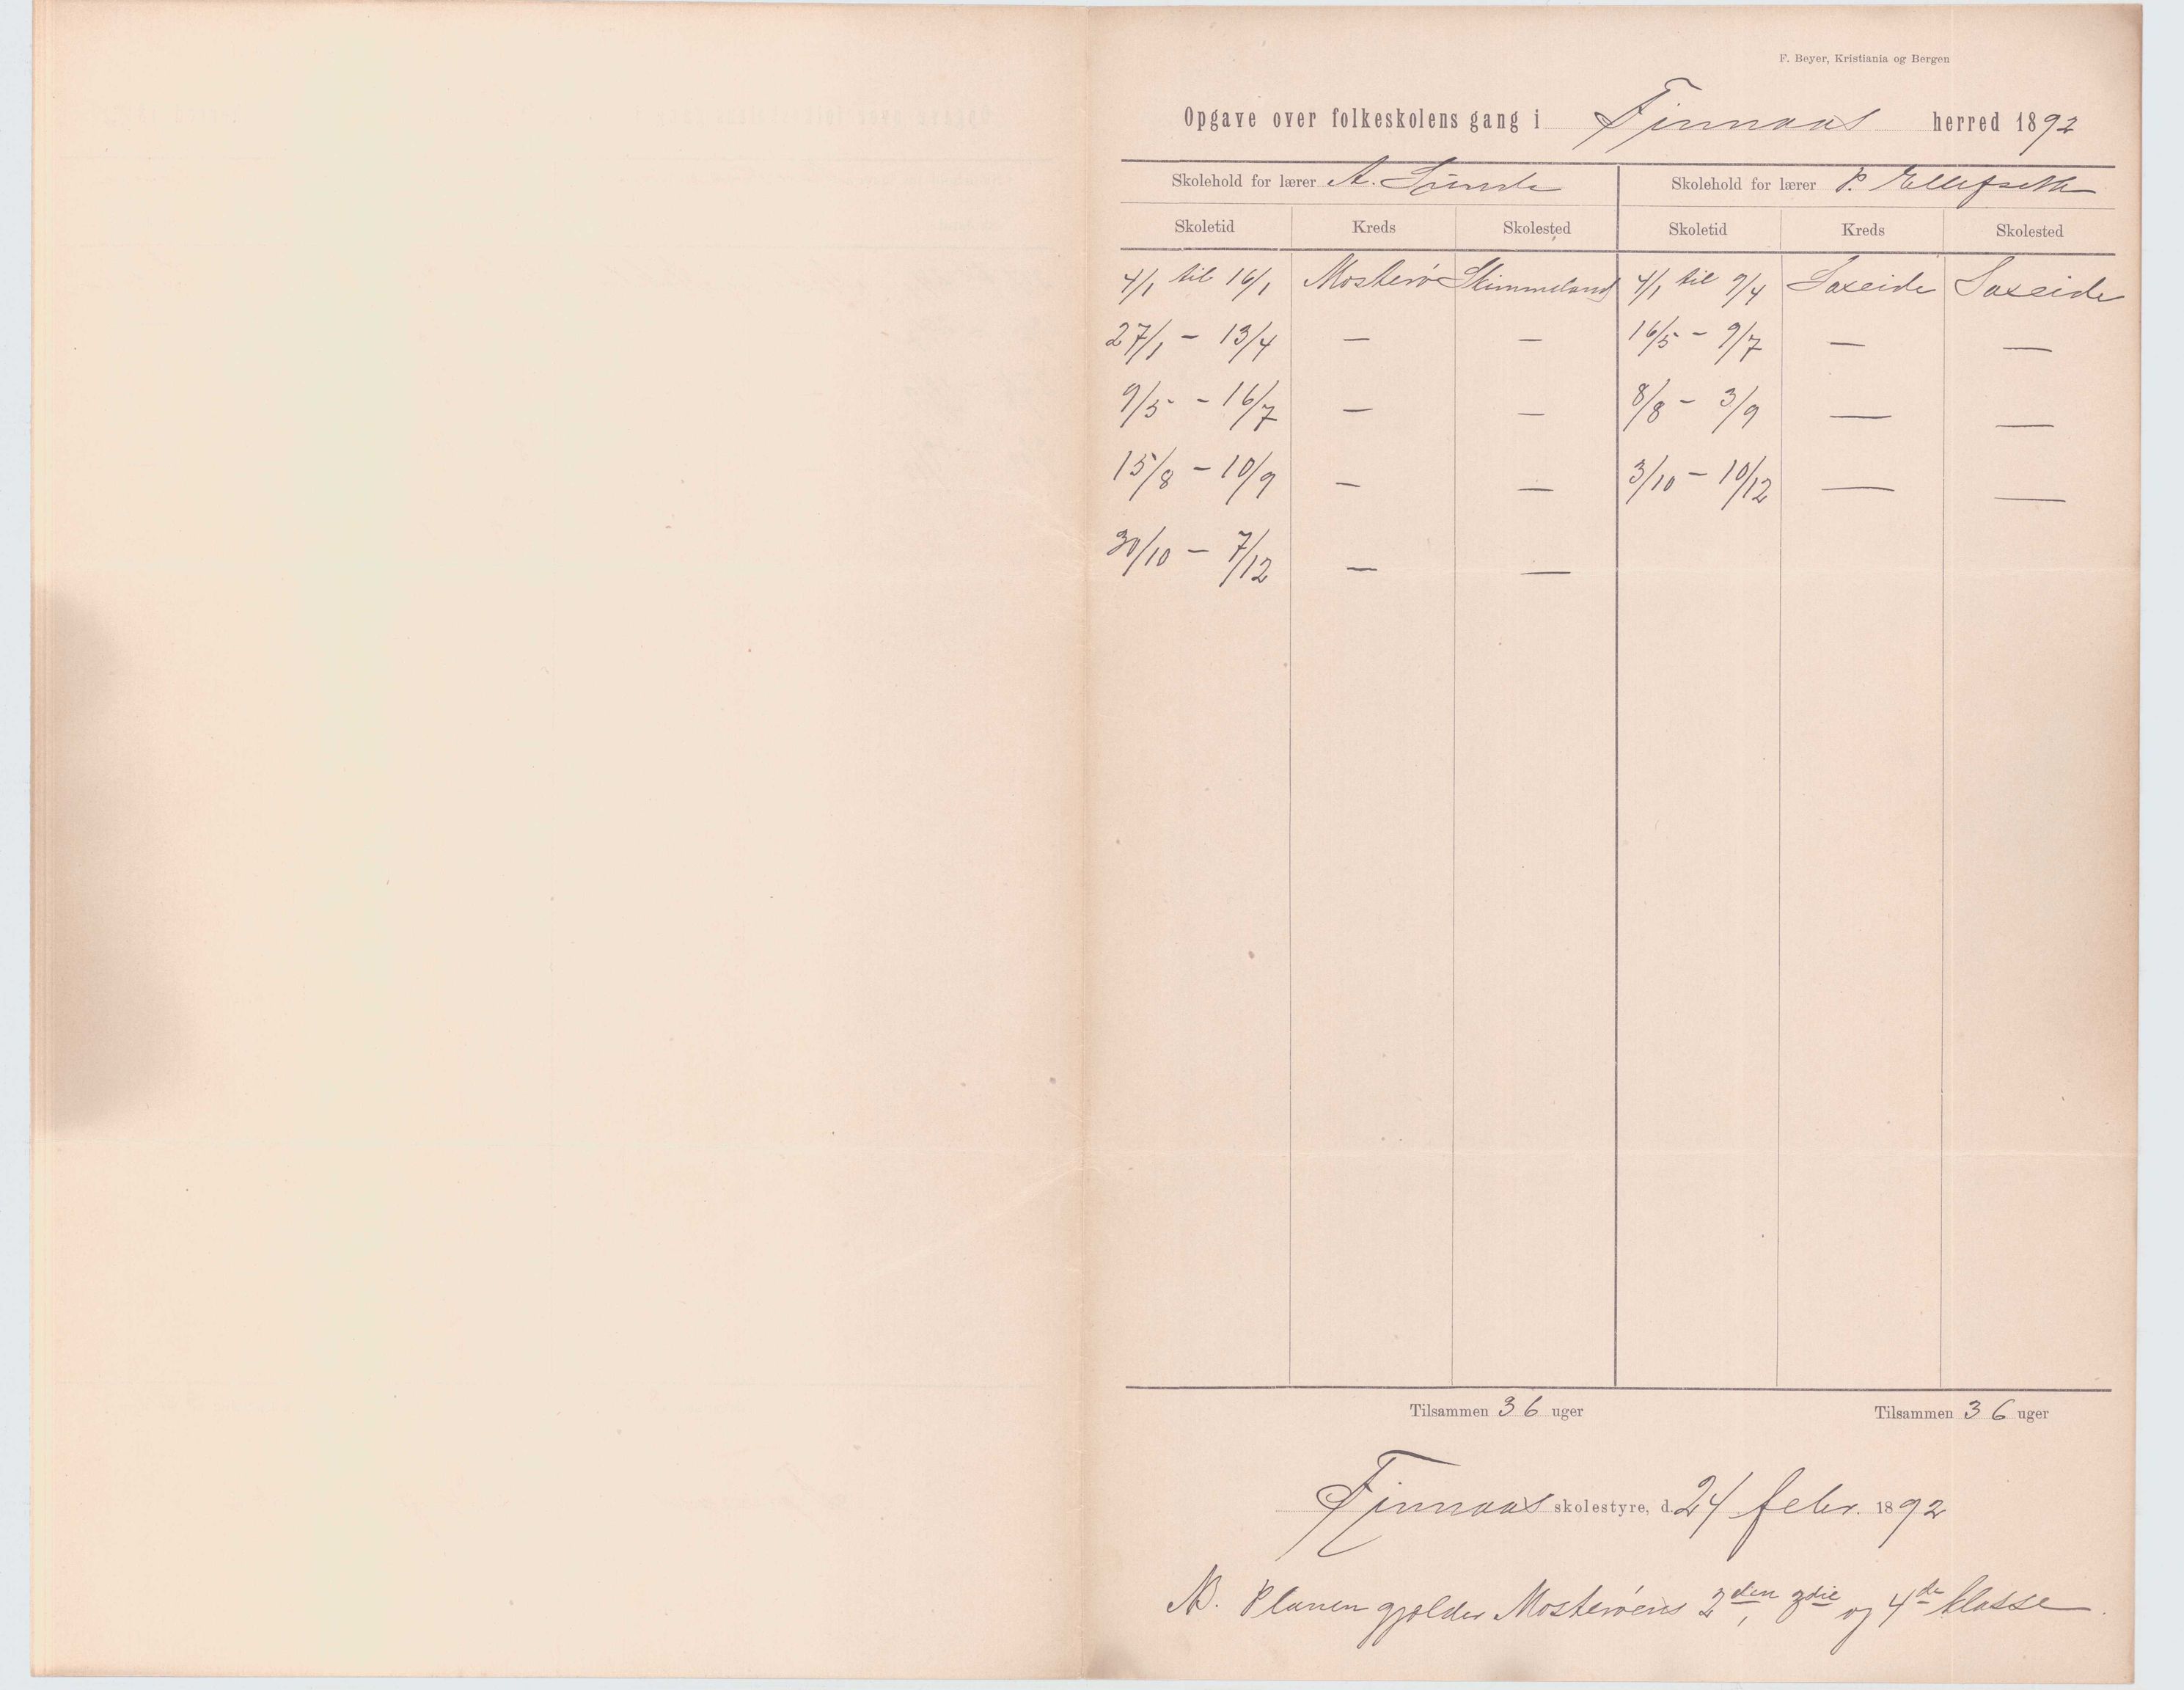 F. Beyer, Kristiania og Bergen
Opgave over folkeskolens gang i Finnaas herred 1892
Skolehold for lærer A. Sunde Skolehold for lærer P. Ellefsen
Skoletid Kreds Skolested Skoletid Kreds Skolested
4/1 til 16/1 Mosterø Skimmeland 4/1 til 9/4 Saxeide Saxeide
27/1 - 13/4 — — 16/5 - 9/7 — —
9/5 - 16/7 — — 8/8 - 3/9 — —
15/8 - 10/9 — — 3/10 - 10/12 — —
30/10 - 7/12 — —
Tilsammen 36 uger Tilsammen 36 uger
Finnaas skolestyre, d. 24 febr. 1892
NB. Planen gjælder Mosterøens 2den, 3die og 4de klasse.